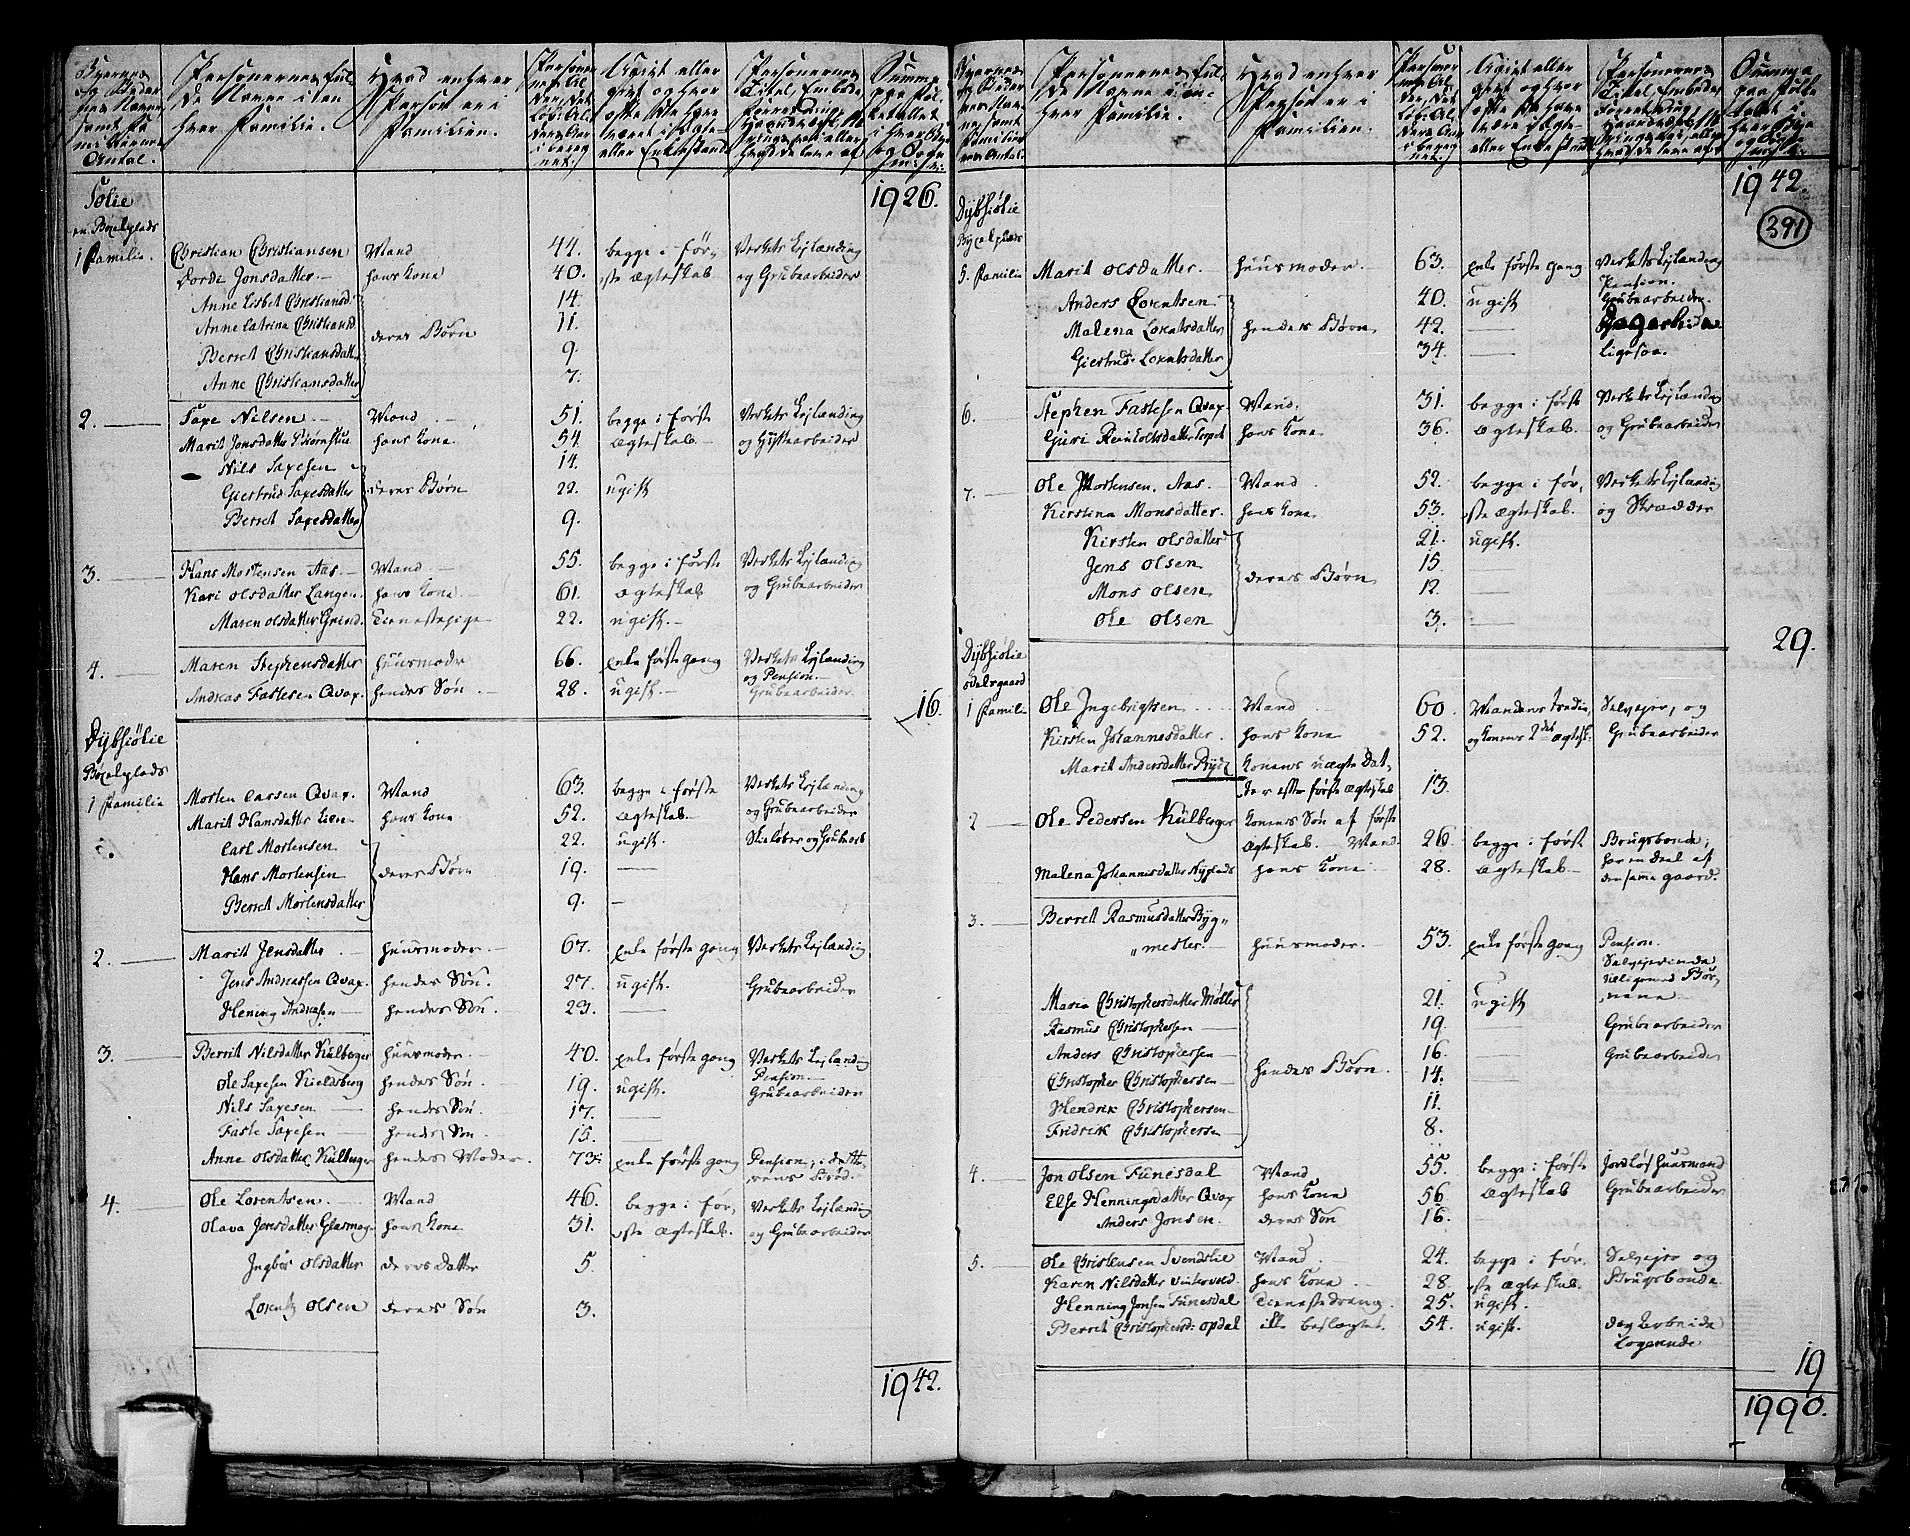 Personernes ful-
de Navne i en
hver Familie.
Hvad enhver
Person er i
Familien.
1926.
Solie
en Boxelplads
1 Familie.
Christian Christiansen Mand 44. begge i før- Verkets Leilænding
Dorde Jonsdatter hans Kone 40. ste Ægteskab og Grubearbeider
Anne Lisbet Christiansd 14.
Anne Catrina Christiand 11.
deres Børn
Berret Christiansdatter 9.
Anne Christiansdatter 7.
2. Saxe Nilsen Mand 51. begge i første Verkets Leilænding
Marit Jonsdatter hans Kone 54. Ægteskab og Hyttearbeider
Nils Saxesen 14.
Giertrud Saxesdatter deres Børn 22. ugift
Berret Saxesdatter 9.
3. Hans Mortensen Aas Mand 55. begge i første Verkets Leilænding
Kari Olsdatter Langen hans Kone 61. Ægteskab og Grubearbeider
Maren Olsdatter Grind. Tienestepige 22. ugift.
4. Maren Stephensdatter Huusmoder 66. Enke første gang Verkets Leilænding
og Pension.
Andreas Fastesen Qvax. hendes Søn. 28. ugift. Grubearbeider
16.
Dybsiølie
Boxelplads
1 Familie
Morten Larsen Qvax. Mand 63. begge i første Verkets Leilænding
Marit Hansdatter Lien hans Kone 52. Ægteskab. og Grubearbeider
Carl Mortensen 22. ugift.
Hans Mortensen deres Børn 19. —
Berret Mortensdatter 9. —
2. Marit Jensdatter Huusmoder 67. Enke første gang Verkets Leilænding
Jens Andreassen Qvax. hendes Søn. 27. ugift. Grubearbeider
Hening Andreasen hendes Søn. 23. —
3. Berrit Nilsdatter Külberger Huusmoder. 40. Enke første gang Verkets Leilænding
Pension.
Ole Saxesen Kieldsberg hendes Søn. 19. ugift. Grubearbeider
Nils Saxesen hendes Søn. 17. —
Faste Saxesen hendes Søn. 15. —
Anne Olsdatter Külberger hendes Moder. 73. Enke første gang Pension, i datte-
rens Brød.
4. Ole Lorentsen. Mand 46. begge i før- Verkets Leilænding
Olava Jonsdatter Glasmag. hans Kone 31. ste Ægteskab. og Grubearbeider
Ingbor Olsdatter deres Datter 5.
Lorentz Olsen deres Søn 3.
1942.
Personernes ful-
de Navne i en-
hver Familie.
Hvad enhver
Person er i
Familien.
1942.
391
Dybsiølie
Boxelplads
5. Familie Marit Olsdatter. Huusmoder. 63. Enke første gang Verkets Leilænding
Pension.
Anders Lorentsen 40. ugift Grubearbeider.
Malena Lorentsdatter hendes Børn 42. —
Giertrud Lorentsdatter 34. — Ligesaa.
6. Stephen Fastesen Qvax. Mand. 31. begge i første Verkets Leilænding
Guri Reinholtsdatter hans Kone 36. Ægteskab. og Grubearbeider
7. Ole Mortensen Aas. Mand 52. begge i før- Verkets Leilænding
Kirstina Monsdatter. hans Kone. 53. ste Ægteskab. og Skrædder
Kirsten Olsdatter 21. ugift.
Jens Olsen 15
deres Børn
Mons Olsen 12.
Ole Olsen 3.
29.
Dybsiølie
Odelsgaard
1 Familie Ole Ingebrigtsen Mand 60. Mandens tredie, Selveier, og
Kirsten Johannesdatter. hans Kone 52. og Konens 2det Ægtesk. Grubearbeider
Marit Andersdatter Konens uægte Dat-
ter efter første Ægteskab 13.
2 Ole Pedersen Külberger Konens Søn af første
Ægteskab. Mand. 26 begge i første Brugsbonde,
har en Deel af
Malena Johannisdatter Nyplads hans Kone 28. Ægteskab den samme gaard.
3. Berret Rasmusdatter Byg-
mester Huusmoder. 53. Enke første gang Pension.
Maria Christophersdatter Møller 21. ugift
Rasmus Christophersen 19. — Grubearbeider
Anders Christophersen 16. — Grubearbeider
hendes Børn.
Christopher Christophersen 14. —
Hendrik Christophersen 11.
Fridrik Christophersen 8.
4. Jon Olsen Funesdal Mand 55. begge i første Jordløs Huusmand
Else Henningsdatter Qvax hans Kone 56. Ægteskab Grubearbeider
Anders Jonsen. deres Søn 16. —
5. Ole Christensen Svendslie Mand 24. begge i før- Selveier og
Karen Nilsdatter hans Kone 28. ste Ægteskab. Brugsbonde
Henning Jonsen Funesdal Tienestedreng 25. ugift.
Berret Christophersd: Opdal ikke beslægtet. 54. ugift. Dag Arbeide
Logerende
19
1990.